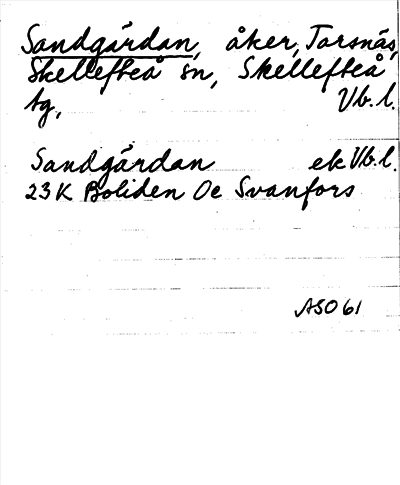 Sandgärdan, åker, Torsnäs,
Skellefteå sn, Skellefteå
tg, Vb.l.
Sandgärdan ek Vb.l.
23 K Boliden Oe Svanfors
ASO 61